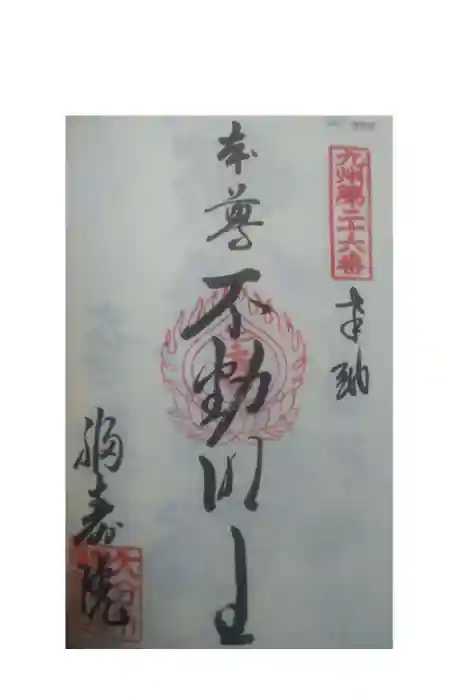 九州第二十六番
奉納
本尊
不動明王
福寿院